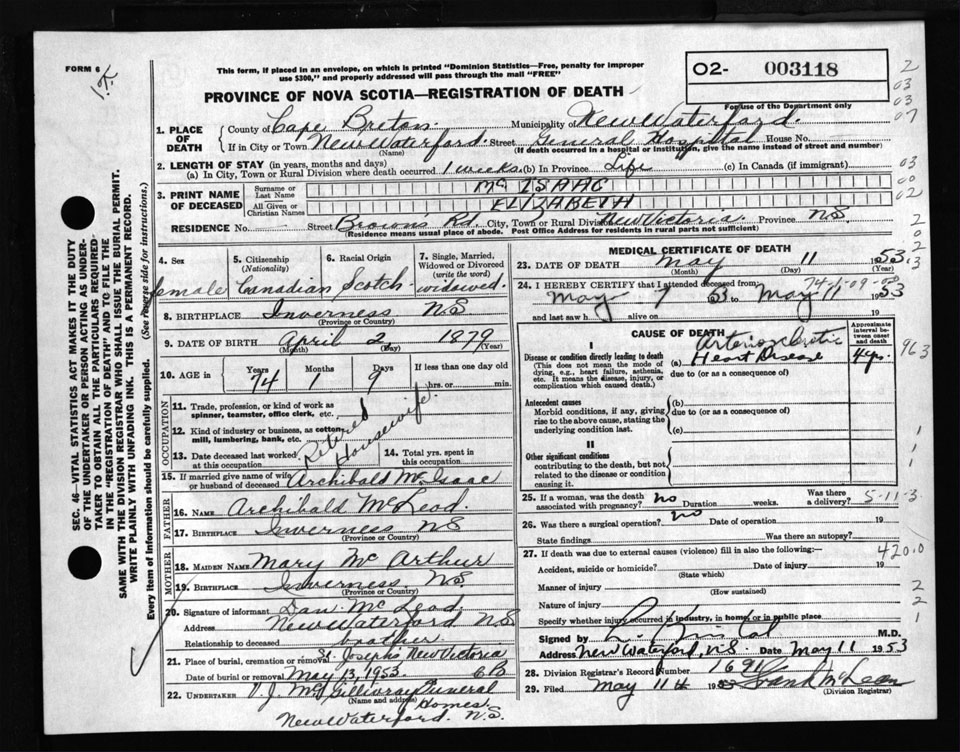 FORM 6
K
This form, if placed in an envelope, on which is printed "Dominion Statistics—Free, penalty for improper
use $300," and properly addressed will pass through the mail "FREE"
02- 003118
PROVINCE OF NOVA SCOTIA—REGISTRATION OF DEATH
For use of the Department only
2
03
03
07
03
00
02
1. PLACE OF DEATH
County of Cape Breton Municipality of New Waterford
If in City or Town New Waterford. Street General Hospital House No.
(Name) (If death occurred in a hospital or institution, give the name instead of street and number)
2. LENGTH OF STAY (in years, months and days)
(a) In City, Town or Rural Division where death occurred 1 weeks (b) In Province Life (c) In Canada (if immigrant)
3. PRINT NAME OF DECEASED
Surname or Last Name Mc ISAAC
All Given or Christian Names ELIZABETH
RESIDENCE No. Street Browns Rd. City, Town or Rural Division New Victoria Province N.S.
(Residence means usual place of abode. Post Office Address for residents in rural parts not sufficient)
SEC. 46—VITAL STATISTICS ACT MAKES IT THE DUTY
OF THE UNDERTAKER OR PERSON ACTING AS UNDER-
TAKER TO OBTAIN ALL THE PARTICULARS REQUIRED
IN THE "REGISTRATION OF DEATH" AND TO FILE THE
SAME WITH THE DIVISION REGISTRAR WHO SHALL ISSUE THE BURIAL PERMIT.
WRITE PLAINLY WITH UNFADING INK. THIS IS A PERMANENT RECORD.
Every item of information should be carefully supplied. (See reverse side for instructions.)
4. Sex female
5. Citizenship (Nationality) Canadian
6. Racial Origin Scotch
7. Single, Married, Widowed or Divorced (write the word) widowed.
8. BIRTHPLACE Inverness NS
(Province or Country)
9. DATE OF BIRTH April 2 1879
(Month) (Day) (Year)
10. AGE in Years 74 Months 1 Days 9 If less than one day
hrs. or min.
OCCUPATION
11. Trade, profession, or kind of work as
spinner, teamster, office clerk, etc.
12. Kind of industry or business, as cotton
mill, lumbering, bank, etc.
Retired Housewife
13. Date deceased last worked at this occupation
14. Total yrs. spent in this occupation
15. If married give name of wife
or husband of deceased Archibald McIsaac
FATHER
16. NAME Archibald McLeod.
17. BIRTHPLACE Inverness NS
(Province or Country)
MOTHER
18. MAIDEN NAME Mary Mc Arthur
19. BIRTHPLACE Inverness NS
(Province or Country)
20. Signature of informant Dan Mc Leod
Address New Waterford NS
Relationship to deceased brother
21. Place of burial, cremation or removal St. Josephs New Victoria
Date of burial or removal May 13, 1953. CB
22. UNDERTAKER V. J. McGillivray Funeral
(Name and address) Homes.
New Waterford. N.S.
MEDICAL CERTIFICATE OF DEATH
23. DATE OF DEATH May 11 1953
(Month) (Day) (Year)
24. I HEREBY CERTIFY that I attended deceased from:
May 7 53 to May 11 1953
and last saw h alive on 19
CAUSE OF DEATH
Approximate interval between cause and death
I
Disease or condition directly leading to death
(This does not mean the mode of
dying, e.g., heart failure, asthenia,
etc. It means the disease, injury, or
complication which caused death.)
Arteriosclerotic
(a) Heart Disease 4 yrs.
due to (or as a consequence of)
963
Antecedent causes
Morbid conditions, if any, giving
rise to the above cause, stating the
underlying condition last.
(b)
due to (or as a consequence of)
(c)
II
Other significant conditions
contributing to the death, but not
related to the disease or condition
causing it.
25. If a woman, was the death
associated with pregnancy? no Duration weeks. Was there a delivery?
5-11-3
26. Was there a surgical operation? no Date of operation 19
State findings Was there an autopsy?
27. If death was due to external causes (violence) fill in also the following:—
420.0
Accident, suicide or homicide? Date of injury 19
(State which)
Manner of injury
(How sustained)
Nature of injury
Specify whether injury occurred in industry, in home, or in public place
Signed by M.D.
Address New Waterford, N.S. Date May 11 1953
28. Division Registrar's Record Number 1691
29. Filed May 11th 1953 Frank McLean
(Division Registrar)